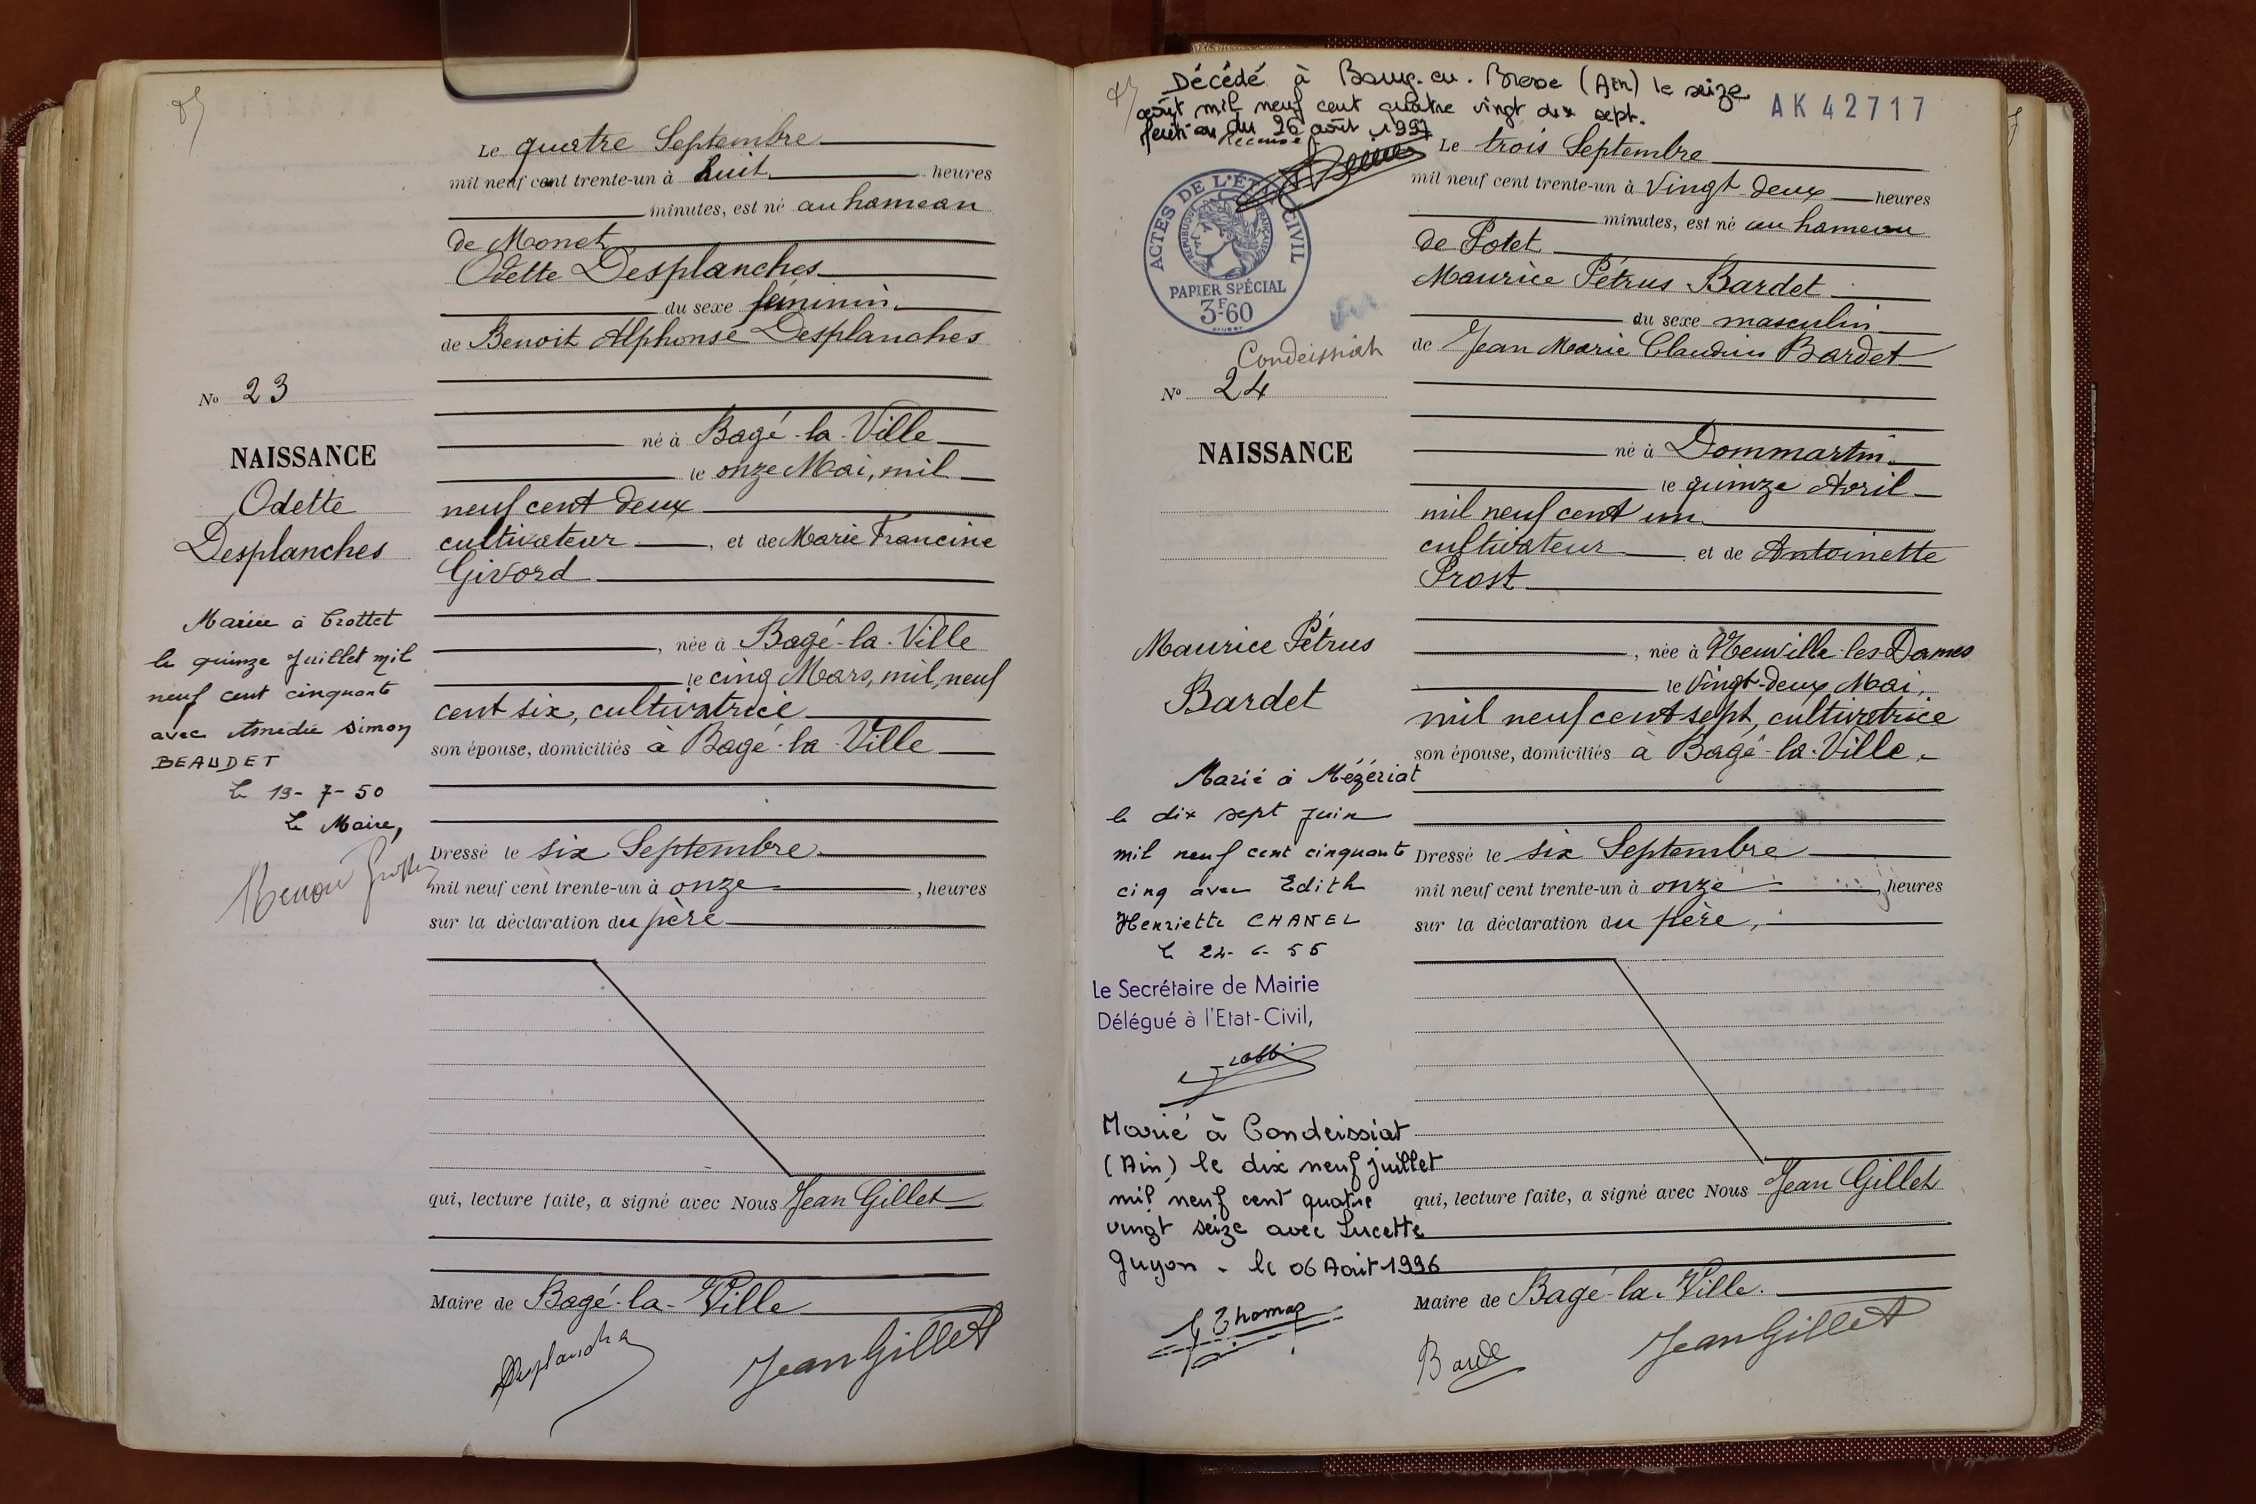 Le quatre Septembre
mil neuf cent trente-un à huit heures
minutes, est né au hameau
de Monet
Odette Desplanches
du sexe féminin
de Benoit Alphonse Desplanches
né à Bagé-la-Ville
le onze Mai, mil
neuf cent deux
cultivateur, et de Marie Francine
Givord
, née à Bagé-la-Ville
le cinq Mars, mil neuf
cent six, cultivatrice
son épouse, domiciliés à Bagé-la-Ville
Dressé le six Septembre
mil neuf cent trente-un à onze, heures
sur la déclaration du père
qui, lecture faite, a signé avec Nous Jean Gillet
Maire de Bagé-la-Ville
Desplanches
Jean Gillet
No 23
NAISSANCE
Odette
Desplanches
Mariée à Crottet
le quinze Juillet mil
neuf cent cinquante
avec Amédée Simon
BEAUDET
Le 19-7-50
Le Maire,
Décédé à Bourg-en-Bresse (Ain) le seize
août mil neuf cent quatre vingt dix sept.
du 26 août 1997
AK 42717
ACTES DE L'ÉTAT CIVIL
PAPIER SPÉCIAL
3F60
Le trois Septembre
mil neuf cent trente-un à vingt-deux heures
minutes, est né au hameau
de Potet
Maurice Pétrus Bardet
du sexe masculin
de Jean Marie Claudius Bardet
né à Dommartin
le quinze Avril
mil neuf cent un
cultivateur et de Antoinette
Prost
, née à Neuville-les-Dames
le vingt-deux Mai,
mil neuf cent sept, cultivatrice
son épouse, domiciliés à Bagé-la-Ville
Dressé le six Septembre
mil neuf cent trente-un à onze, heures
sur la déclaration du père,
qui, lecture faite, a signé avec Nous Jean Gillet
Maire de Bagé-la-Ville.
Bardet
Jean Gillet
Condeissiat
No 24
NAISSANCE
Maurice Pétrus
Bardet
Marié à Mézériat
le dix sept juin
mil neuf cent cinquante
cinq avec Edith
Henriette CHANEL
Le 24-6-55
Le Secrétaire de Mairie
Délégué à l'Etat-Civil,
Marié à Condeissiat
(Ain) le dix neuf juillet
mil neuf cent quatre
vingt seize avec Lucette
Guyon - le 06 Août 1996
Thomas